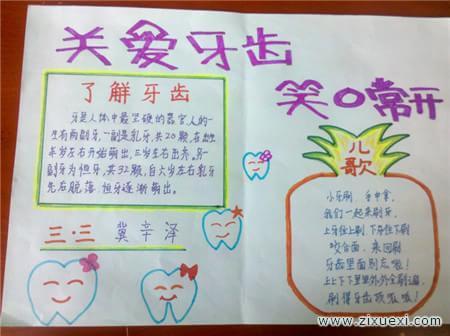 关爱牙齿
笑口常开
了解牙齿
牙是人体中最坚硬的器官,人的一
生有两副牙,一副是乳牙,共20颗,在出生
半岁左右开始萌出,三岁左右出齐。另一
副牙为恒牙,共32颗,自六岁左右乳牙
先后脱落,恒牙逐渐萌出。
三·三 冀辛泽
儿歌
小牙刷 手中拿,
我们一起来刷牙,
上牙往上刷 下牙往下刷
咬合面,来回刷
牙齿里面别忘啦!
上上下下里里外外全刷遍,
刷得牙齿
www.zixuexi.com